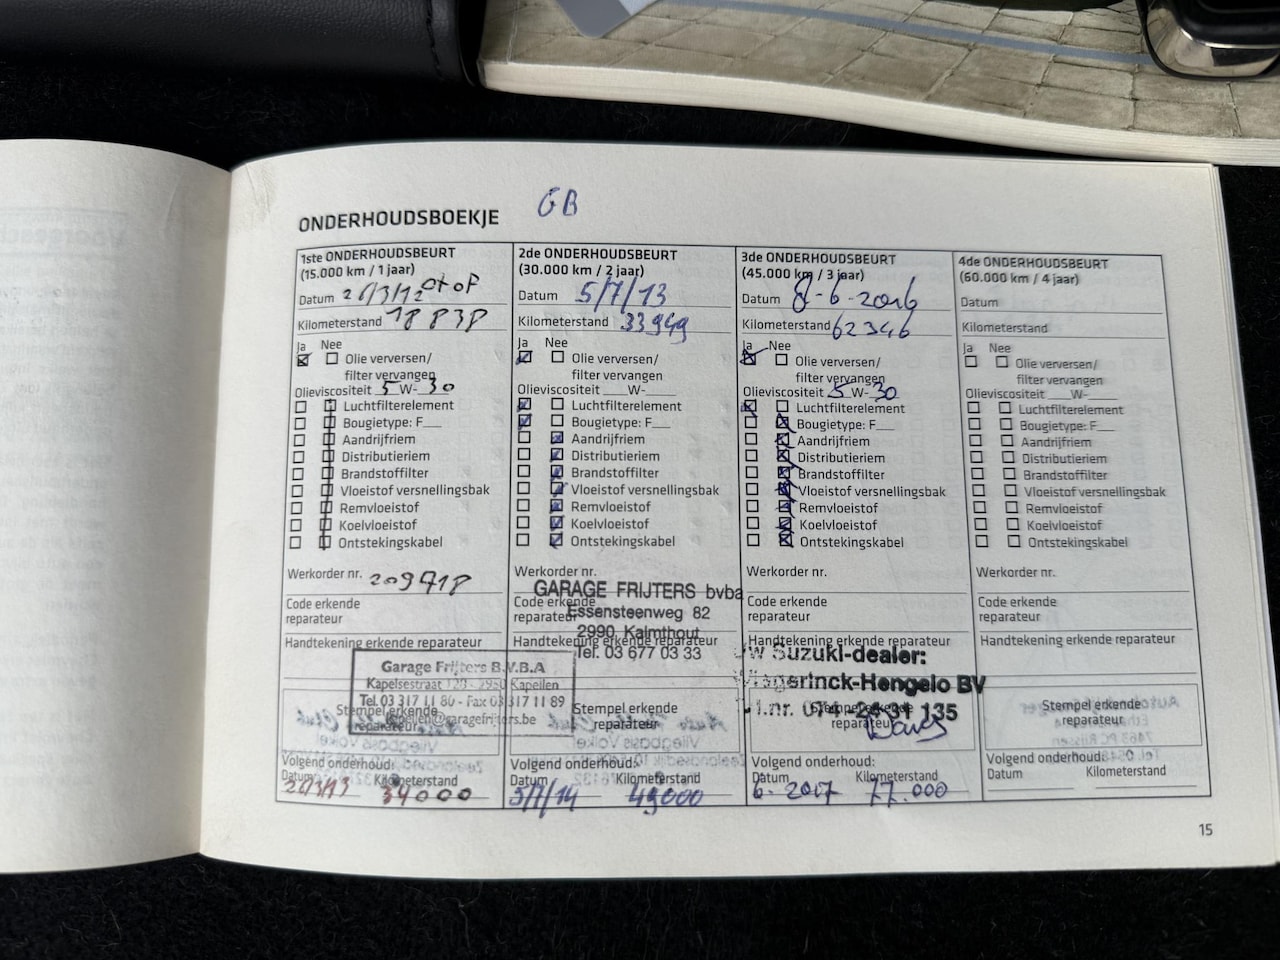 ONDERHOUDSBOEKJE GB
1ste ONDERHOUDSBEURT
(15.000 km / 1 jaar)
Datum 26/3/12
Kilometerstand 18838
Ja Nee
Olie verversen/
filter vervangen
Olieviscositeit 5 W- 30
Luchtfilterelement
Bougietype: F
Aandrijfriem
Distributieriem
Brandstoffilter
Vloeistof versnellingsbak
Remvloeistof
Koelvloeistof
Ontstekingskabel
Werkorder nr.
Code erkende
reparateur
Handtekening erkende reparateur
Garage Frijters B.V.B.A
Kapelsestraat 120 - 2950 Kapellen
Tel. 03 317 11 80 - Fax 03 317 11 89
kapellen@garagefrijters.be
Stempel erkende
reparateur
Volgend onderhoud:
Datum Kilometerstand
26/3/13 34000
2de ONDERHOUDSBEURT
(30.000 km / 2 jaar)
Datum 5/7/13
Kilometerstand 33949
Ja Nee
Olie verversen/
filter vervangen
Olieviscositeit W-
Luchtfilterelement
Bougietype: F
Aandrijfriem
Distributieriem
Brandstoffilter
Vloeistof versnellingsbak
Remvloeistof
Koelvloeistof
Ontstekingskabel
Werkorder nr.
GARAGE FRIJTERS bvba
Code erkende
Essensteenweg 82
reparateur
2990 Kalmthout
Handtekening erkende reparateur
Tel. 03 677 03 33
Stempel erkende
reparateur
Volgend onderhoud:
Datum Kilometerstand
5/7/14 49000
3de ONDERHOUDSBEURT
(45.000 km / 3 jaar)
Datum 8-6-2016
Kilometerstand 62346
Ja Nee
Olie verversen/
filter vervangen
Olieviscositeit 5 W- 30
Luchtfilterelement
Bougietype: F
Aandrijfriem
Distributieriem
Brandstoffilter
Vloeistof versnellingsbak
Remvloeistof
Koelvloeistof
Ontstekingskabel
Werkorder nr.
Code erkende
reparateur
Handtekening erkende reparateur
uw Suzuki-dealer:
Wagerinck-Hengelo BV
Stempel erkende
reparateur
Volgend onderhoud:
Datum Kilometerstand
6-2017 77.000
4de ONDERHOUDSBEURT
(60.000 km / 4 jaar)
Datum
Kilometerstand
Ja Nee
Olie verversen/
filter vervangen
Olieviscositeit W-
Luchtfilterelement
Bougietype: F
Aandrijfriem
Distributieriem
Brandstoffilter
Vloeistof versnellingsbak
Remvloeistof
Koelvloeistof
Ontstekingskabel
Werkorder nr.
Code erkende
reparateur
Handtekening erkende reparateur
Stempel erkende
reparateur
Volgend onderhoud:
Datum Kilometerstand
15